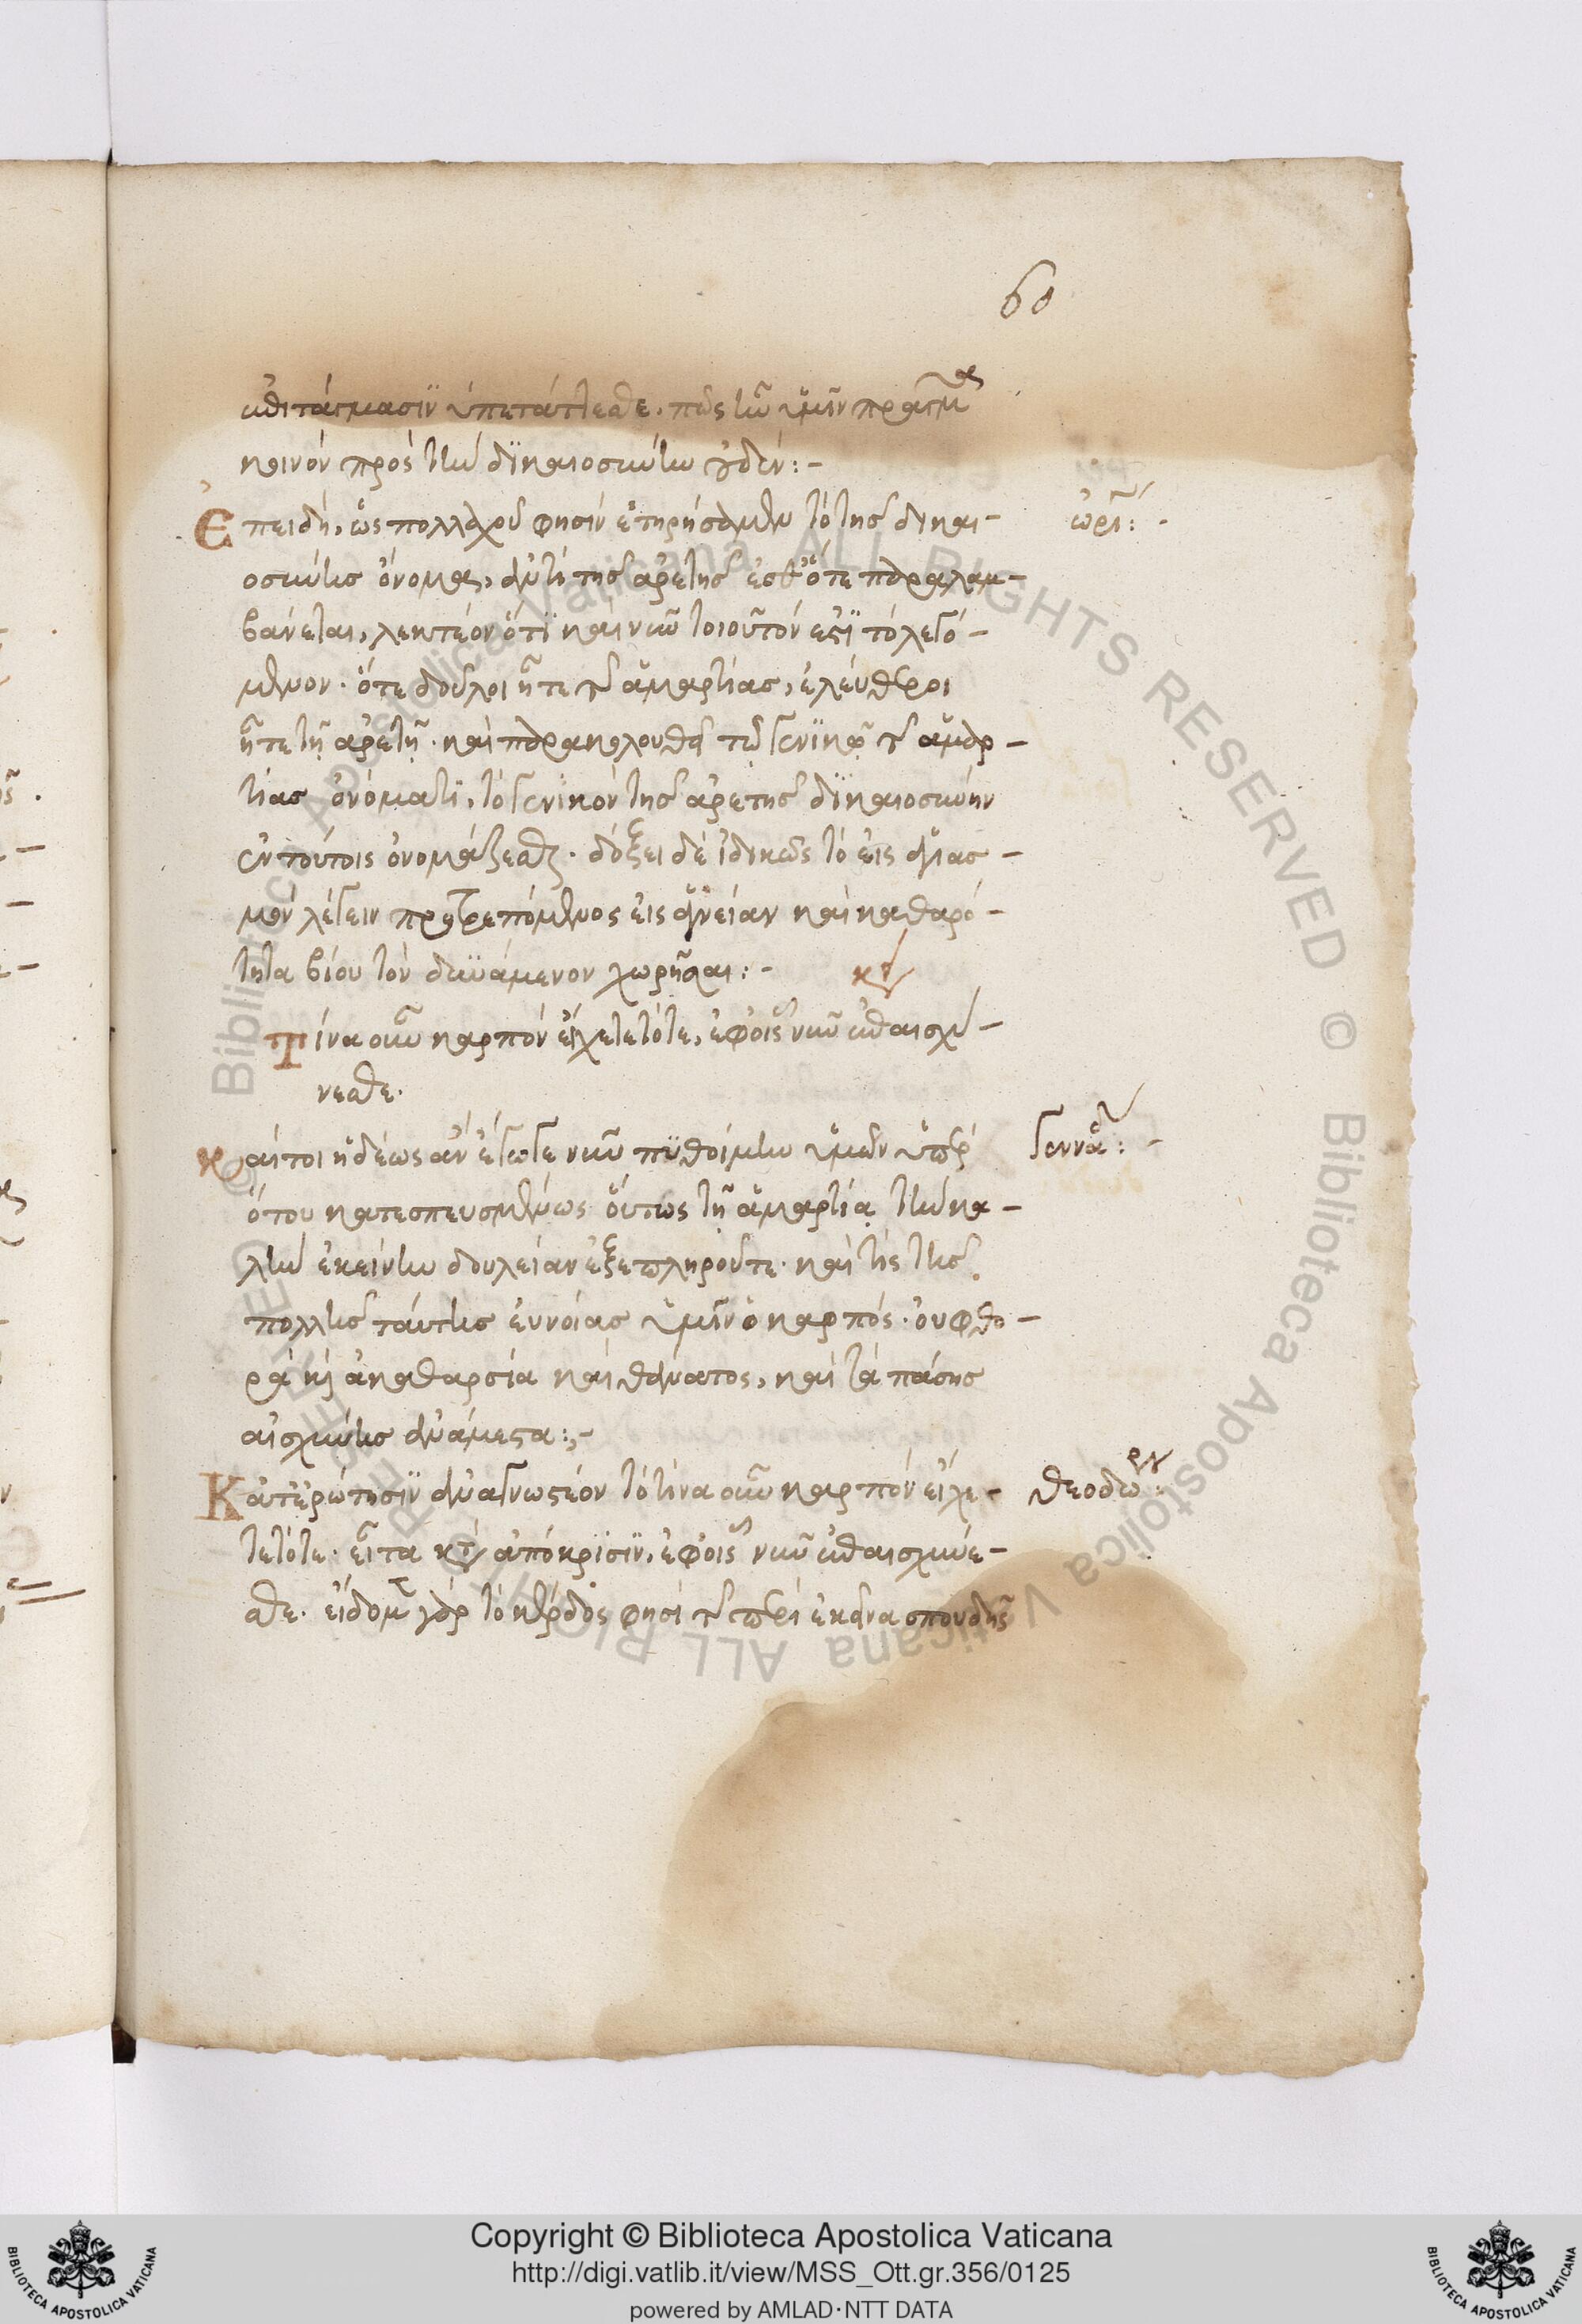 60
ἐπιτάγμασιν ὑπετάττεσθε. πῶς ἦν ὑμῖν πρᾶγμα
κοινὸν πρὸς τὴν δικαιοσύνην οὐδέν:-
Ἐπειδὴ, ὡς πολλαχοῦ φησὶν ἐτηρήσαμεν τὸ τῆς δικαι-
ὠρι:-
οσύνης ὄνομα, ἀντὶ τῆς ἀρετῆς ἐσθ' ὅτε παραλαμ-
βάνεται, λεκτέον ὅτι καὶ νῦν τοιοῦτόν ἐστι τὸ λεγό-
μενον. ὅτε δοῦλοι ἦτε τῆς ἁμαρτίας, ἐλεύθεροι
ἦτε τῇ ἀρετῇ. καὶ παρακολουθεῖ τῷ γενικῷ τῆς ἁμαρ-
τίας ὀνόματι, τὸ γενικὸν τῆς ἀρετῆς δικαιοσύνην
ἐν τούτοις ὀνομάζεσθαι. δόξει δὲ ἰδικῶς τὸ εἰς ἁγιασ-
μὸν λέγειν προτρεπόμενος εἰς ἁγνείαν καὶ καθαρό-
τητα βίου τὸν δυνάμενον χωρῆσαι:-
Τίνα οὖν καρπὸν εἴχετε τότε, ἐφ' οἷς νῦν ἐπαισχύ-
νεσθε.
Καίτοι ἡδέως ἂν ἔγωγε νῦν πυθοίμην ὑμῶν ὑπὲρ
γεννα:-
ὅτου κατεσπευσμένως οὕτως τῇ ἁμαρτίᾳ τὴν κα-
λὴν ἐκείνην δουλείαν ἐξεπληροῦτε. καὶ τίς τῆς
πολλῆς ταύτης εὐνοίας ὑμῖν ὁ καρπός. οὐ φθο-
ρὰ καὶ ἀκαθαρσία καὶ θάνατος, καὶ τὰ πάσης
αἰσχύνης ἀνάμεστα:-
Κατ' ἐρώτησιν ἀναγνωστέον τὸ τίνα οὖν καρπὸν εἴχε-
θεοδω:
τε τότε. εἶτα κατὰ ἀπόκρισιν, ἐφ' οἷς νῦν ἐπαισχύνε-
σθε. εἴδομεν γὰρ τὸ κέρδος φησὶ τῆς περὶ ἐκεῖνα σπουδῆς
Copyright © Biblioteca Apostolica Vaticana
http://digi.vatlib.it/view/MSS_Ott.gr.356/0125
powered by AMLAD·NTT DATA
BIBLIOTECA APOSTOLICA VATICANA
BIBLIOTECA APOSTOLICA VATICANA
© Biblioteca Apostolica Vaticana ALL RIGHTS RESERVED © Biblioteca Apostolica Vaticana ALL RIGHTS RESERVED